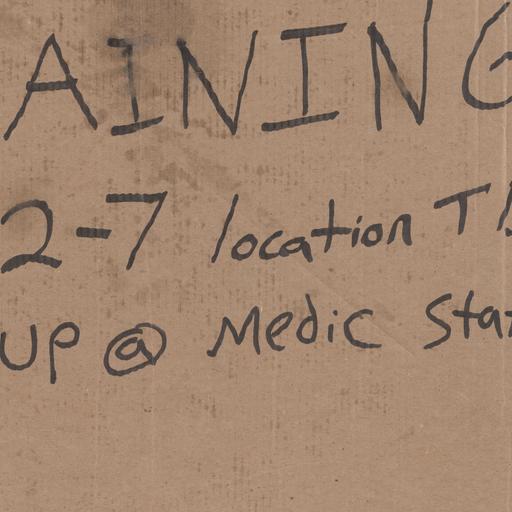 AINING
2-7 location T
UP @ Medic Stat